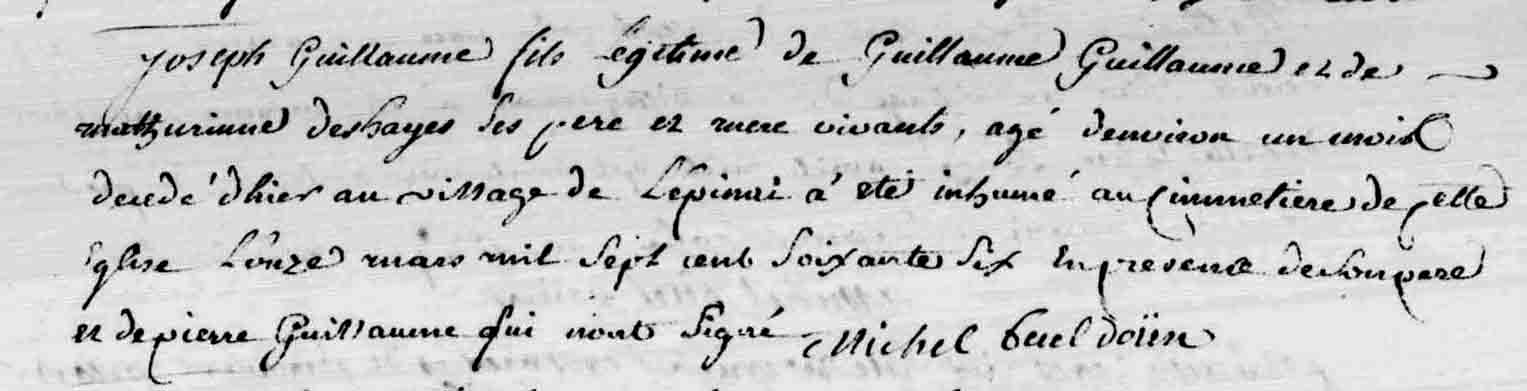 Joseph Guillaume fils Légitime de Guillaume Guillaume et de
mathurinne deshayes Ses pere et mere vivants, agé denviron un mois
decedé d'hier au village de Lépinai a été inhumé au Cimmetiere de cette
Eglise L'onze mars mil Sept cent Soixante Six En presence de Son pere
et de pierre Guillaume qui n'ont Signé Michel